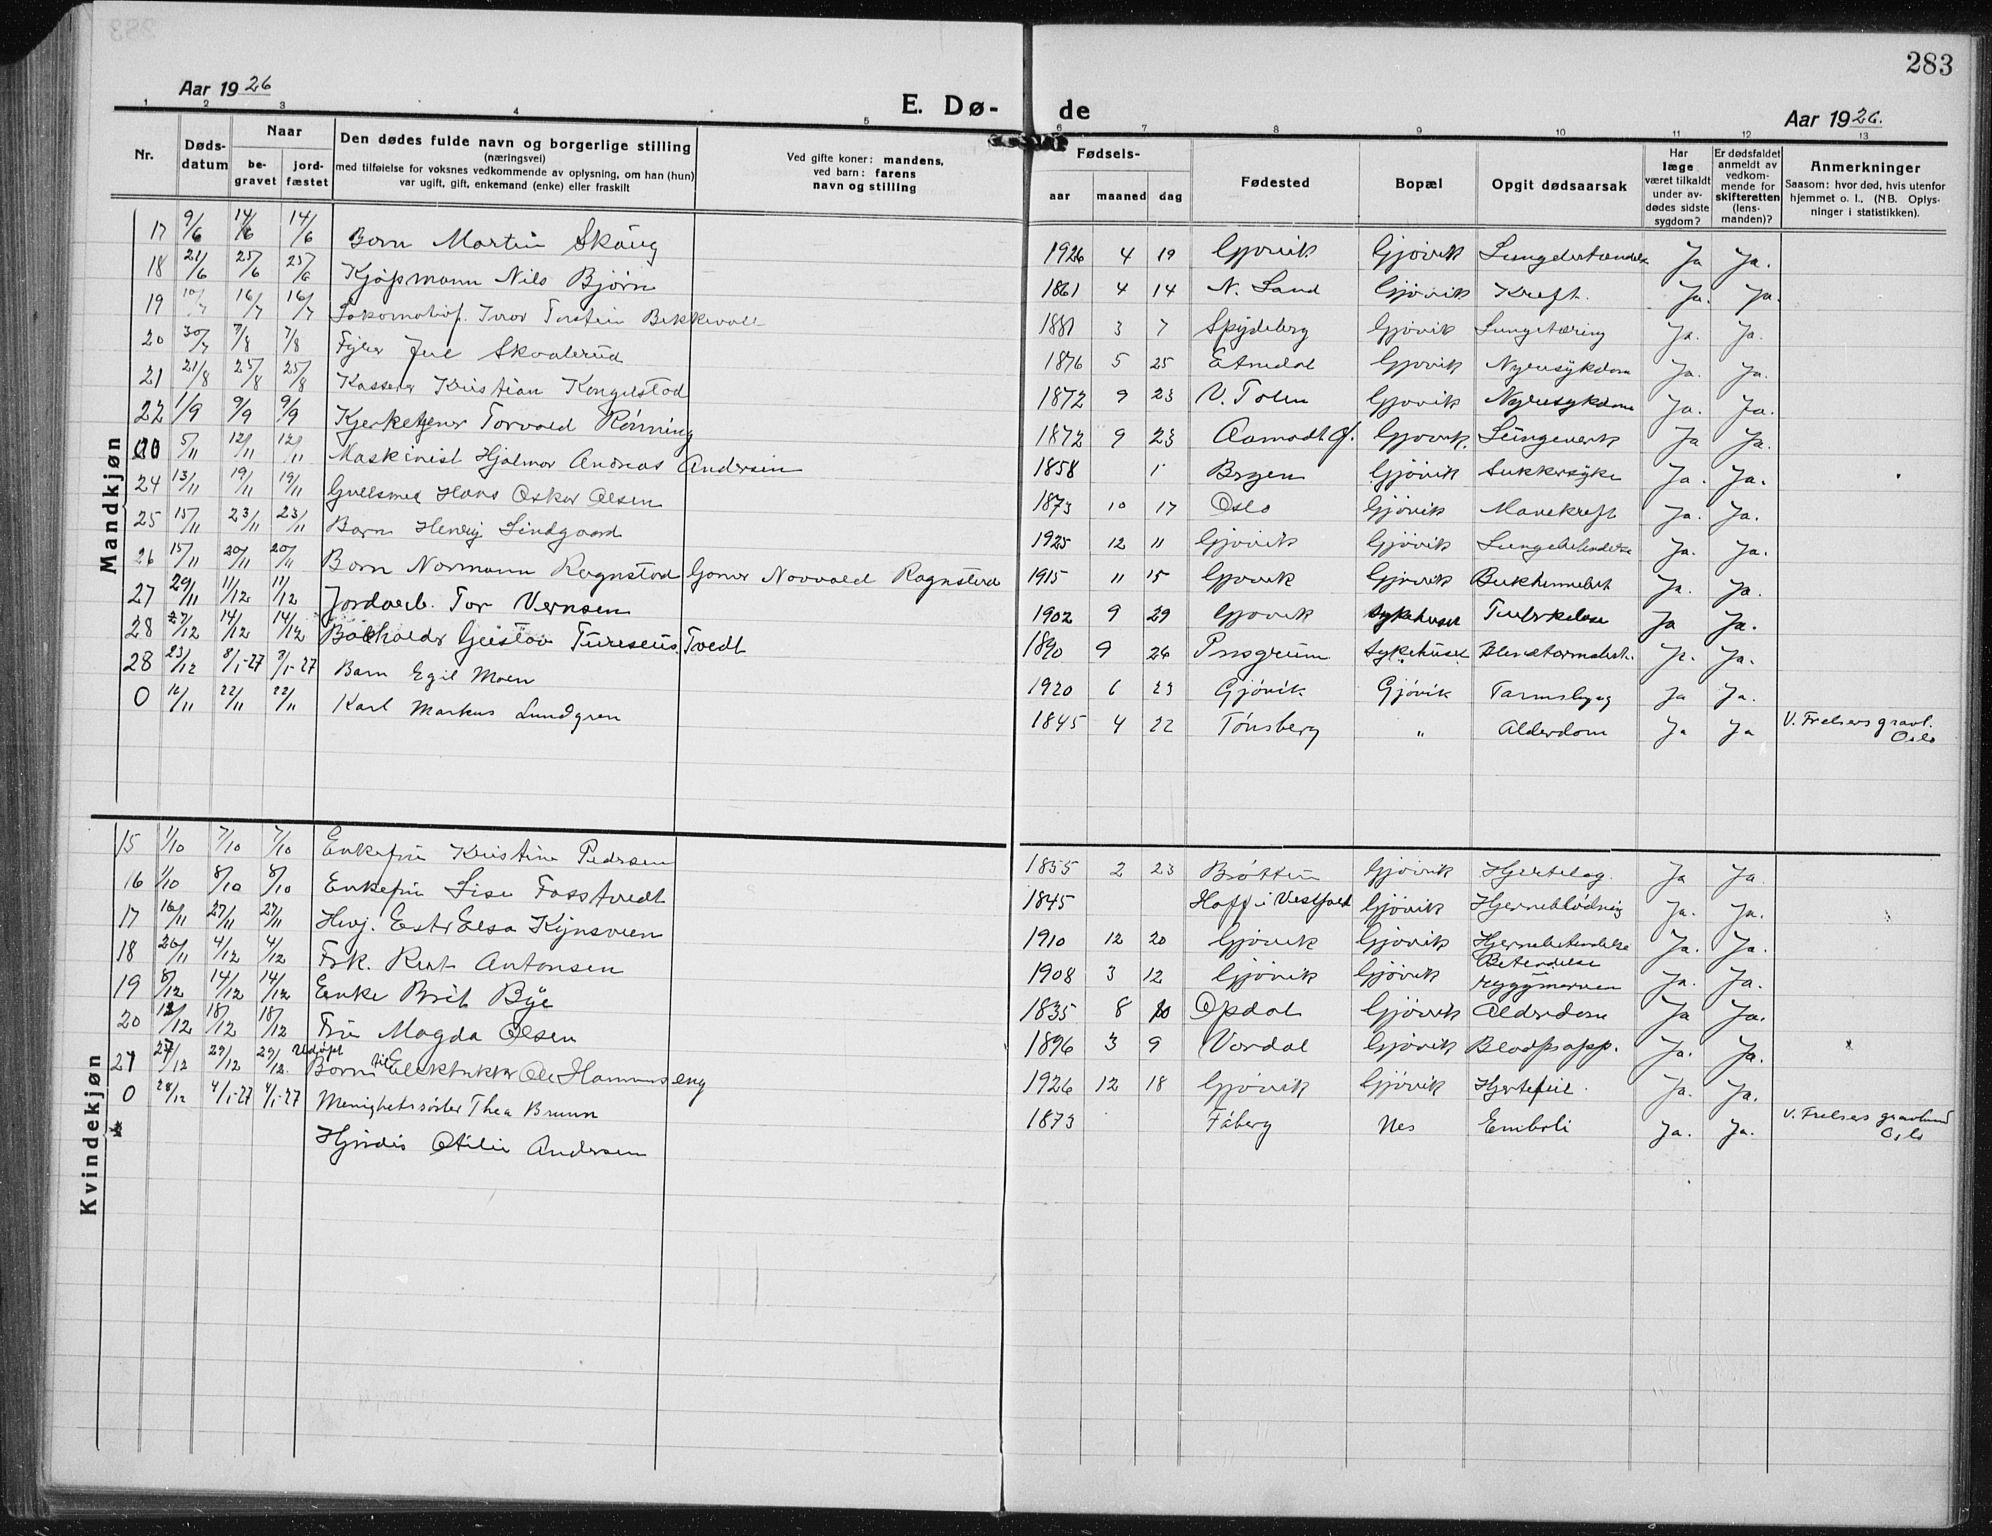 283
Aar 1926
E. Dø-
de
Aar 1926.
1 2 3 4 5 6 7 8 9 10 11 12 13
Nr.
Døds-
datum
Naar
be-
gravet
jord-
fæstet
Den dødes fulde navn og borgerlige stilling
(næringsvei)
med tilføielse for voksnes vedkommende av oplysning, om han (hun)
var ugift, gift, enkemand (enke) eller fraskilt
Ved gifte koner: mandens,
ved barn: farens
navn og stilling
Fødsels-
aar
maaned
dag
Fødested
Bopæl
Opgit dødsaarsak
Har
læge
været tilkaldt
under av-
dødes sidste
sygdom?
Er dødsfaldet
anmeldt av
vedkom-
mende for
skifteretten
(lens-
manden)?
Anmerkninger
Saasom: hvor død, hvis utenfor
hjemmet o. l., (NB. Oplys-
ninger i statistikken).
Mandkjøn
17 9/6 14/6 14/6 Barn Martin Skaug 1926 4 19 Gjøvik Gjøvik Ja Ja.
18 21/6 25/6 25/6 Kjøpmann Nils Bjørn 1861 4 14 N. Land Gjøvik Kreft. Ja. Ja.
19 10/7 16/7 16/7 Ivar Torstein 1881 3 7 Spydeberg Gjøvik Lungetæring Ja. Ja.
20 30/7 7/8 7/8 1876 5 25 Etnedal Gjøvik Nyresykdom Ja. Ja.
21 21/8 25/8 25/8 Kasserer Kristian Kongelstad 1872 9 23 V. Toten Gjøvik Nyresykdom Ja. Ja.
22 1/9 9/9 9/9 Kjerketjener Torvald Rønning 1872 9 23 Aamodt Ø. Gjøvik. Ja Ja.
5/11 12/11 12/11 Maskinist Hjalmar Andreas Andersen 1858 1 Gjøvik Sukkersyke Ja. Ja.
24 13/11 19/11 19/11 Gullsmed Hans Oskar Olsen 1873 10 17 Oslo Gjøvik Mavekreft Ja. Ja.
25 15/11 23/11 23/11 Barn Henry Lindgaard 1925 12 11 Gjøvik Gjøvik Ja. Ja.
26 15/11 20/11 20/11 Barn Normann Ragnstad Norvald Ragnstad 1915 11 15 Gjøvik Gjøvik Ja. Ja.
27 29/11 11/12 11/12 Jordarb. Tor Vernsen 1902 9 29 Gjøvik Sykehuset Ja Ja.
28 /12 14/12 14/12 Bokholder Gustav Tvedt 1890 9 26 Sykehuset Ja. Ja.
28 23/12 8/1-27 8/1-27 Barn Egil Moen 1920 6 23 Gjøvik Gjøvik Ja Ja.
0 16/11 22/11 22/11 Karl Markus Lundgren 1845 4 22 Tønsberg " Alderdom Ja Ja V. Frelsers gravl.
Oslo
Kvindekjøn
15 1/10 7/10 7/10 Enkefru Kristine Pedersen 1855 2 23 Brøttum Gjøvik Hjerteslag. Ja Ja
16 1/10 8/10 8/10 Enkefru Lise Fosstvedt 1845 Hoff i Vestfold Gjøvik Hjerneblødning Ja. Ja.
17 16/11 27/11 27/11 Ester Elsa 1910 12 20 Gjøvik Gjøvik Hjernebetendelse Ja. Ja.
18 26/11 4/12 4/12 Frk. Rut Antonsen 1908 3 12 Gjøvik Gjøvik Betendelse
ryggmarven Ja. Ja.
19 8/12 14/12 14/12 Enke Brit Bye 1835 8 10 Opdal Gjøvik Alderdom Ja Ja.
20 12/12 18/12 18/12 Fru Magda Olsen 1896 3 9 Vardal Gjøvik Blodpropp. Ja. Ja.
21 /12 29/12 29/12 Udøpt
Barn til Elektriker Ole Hammerseng 1926 12 18 Gjøvik Gjøvik Hjertefeil. Ja. Ja.
0 28/12 4/1-27 4/1-27 Menighetssøster Thea Bruun 1873 Fåberg Nes Emboli Ja. Ja. V. Frelsers gravlund
Oslo
Hjørdis Otilie Andersen